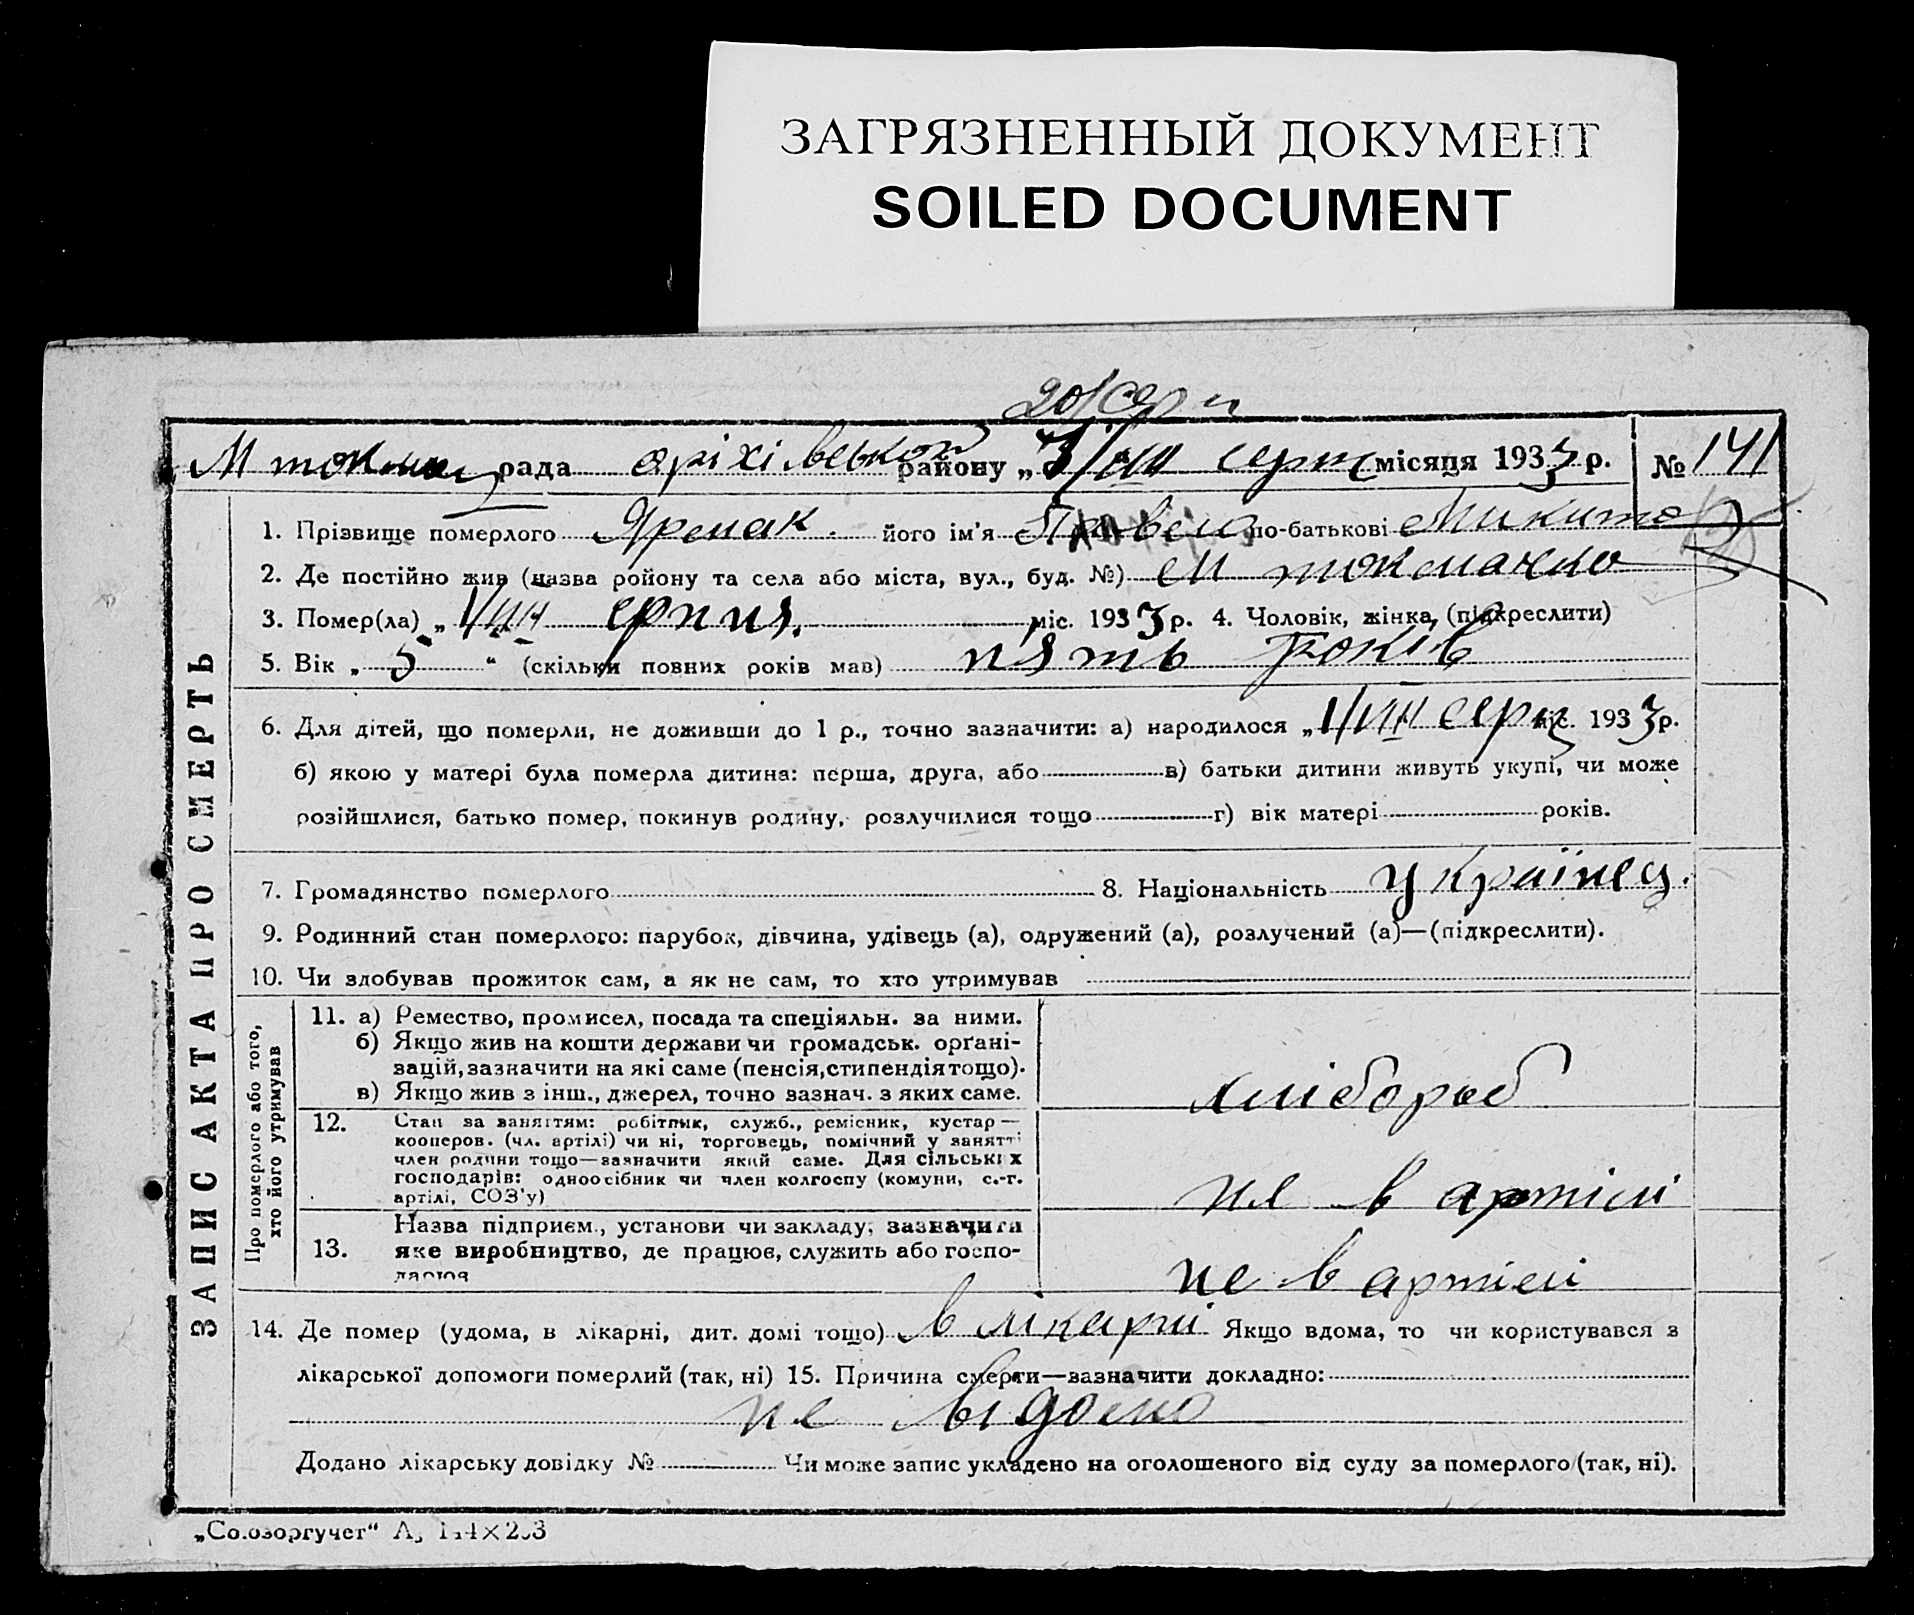 ЗАГРЯЗНЕННЫЙ ДОКУМЕНТ
SOILED DOCUMENT
20/серп
М токмац рада оріхівської району „ /VIII серп місяця 1933 р. № 141
ЗАПИС АКТА ПРО СМЕРТЬ
1. Прізвище померлого Яремак. його ім'я Павело по-батькові Микито
2. Де постійно жив (назва ройону та села або міста, вул., буд. №) М токмачко
3. Помер(ла) „ 1/VIII серпня. міс. 1933 р. 4. Чоловік, жінка, (підкреслити)
5. Вік „ 5 “ (скільки повних років мав) пять років
6. Для дітей, що померли, не доживши до 1 р., точно зазначити: а) народилося „ 1/VIII серп міс. 1933 р.
б) якою у матері була померла дитина: перша, друга, або в) батьки дитини живуть укупі, чи може
розійшлися, батько помер, покинув родину, розлучилися тощо г) вік матері років.
7. Громадянство померлого 8. Національність українец.
9. Родинний стан померлого: парубок, дівчина, удівець (а), одружений (а), розлучений (а)—(підкреслити).
10. Чи здобував прожиток сам, а як не сам, то хто утримував
Про померлого або того, хто його утримував
11. а) Ремество, промисел, посада та спеціяльн. за ними.
б) Якщо жив на кошти держави чи громадськ. орґані-
зацій, зазначити на які саме (пенсія, стипендія тощо).
в) Якщо жив з інш., джерел, точно зазнач. з яких саме.
хлібороб
12. Стан за заняттям: робітник, служб., ремісник, кустар—
кооперов. (чл. артілі) чи ні, торговець, помічний у занятті
член родини тощо—зазначити який саме. Для сільських
господарів: одноосібник чи член колгоспу (комуни, с.-г.
артілі, СОЗ'у)
не в артілі
13. Назва підприєм., установи чи закладу; зазначити
яке виробництво, де працює, служить або госпо-
дарює
не в артілі
14. Де помер (удома, в лікарні, дит. домі тощо) в лікарні Якщо вдома, то чи користувався з
лікарської допомоги померлий (так, ні) 15. Причина смерти—зазначити докладно:
не відомо
Додано лікарську довідку № Чи може запис укладено на оголошеного від суду за померлого (так, ні).
„Союзоргучет“